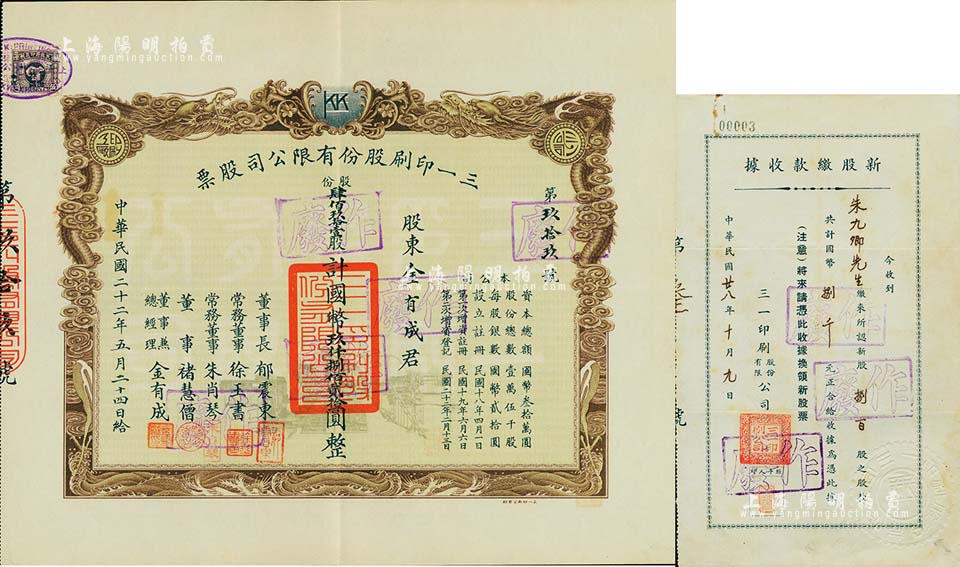 上海陽明拍賣
www.yangmingauction.com
KK
三一印刷股份有限公司股票
第玖拾玖號
本公司
資本總額國幣叁拾萬圓
股份總數壹萬伍千股
每股銀數國幣貳拾圓
設立註冊民國十八年四月一日
第一次增資註冊民國十九年六月六日
第二次增資登記民國二十二年二月十三日
股東金有成君
股份肆佰玖拾壹股計國幣玖仟捌佰貳拾圓整
董事長郁震東
常務董事徐玉書
常務董事朱肖琴
董事褚慧僧
董事兼總經理金有成
中華民國二十二年五月二十四日給
作廢
作廢
作廢
上海陽明拍賣
www.yangmingauction.com
00003
新股繳款收據
今收到
朱九卿先生繳來所認新股捌百股之股款
共計國幣捌千元正合給收據為憑此據
(注意)將來請憑此收據換領新股票
三一印刷股份有限公司
經手人印
中華民國廿八年十月九日
作廢
作廢
作廢
上海陽明拍賣
www.yangmingauction.com